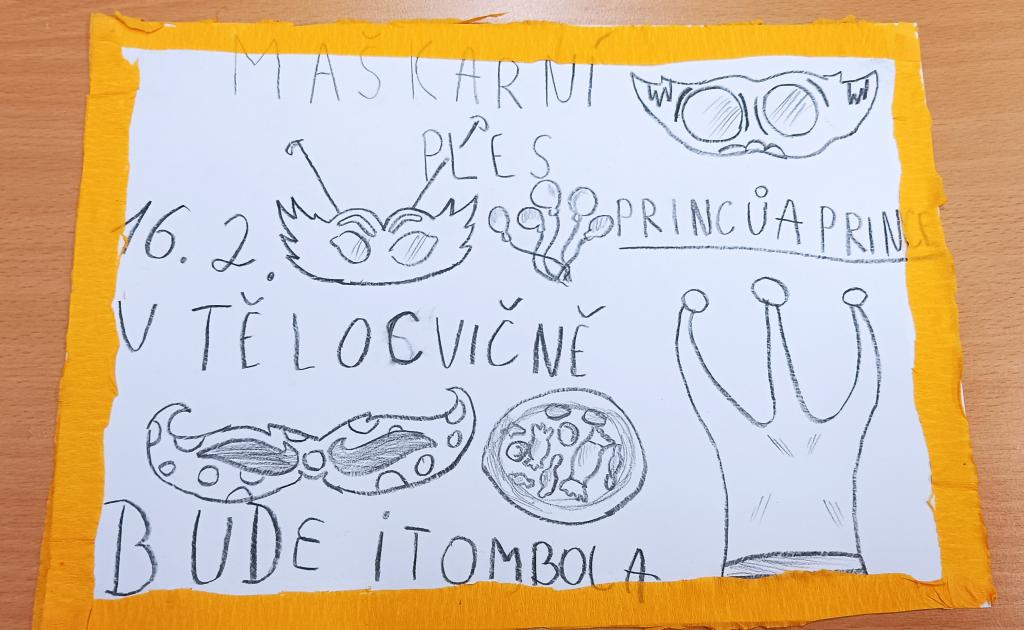 MAŠKARNÍ
PLES
16. 2.
PRINCŮ A PRINCE
V TĚLOCVIČNĚ
BUDE i TOMBOLA